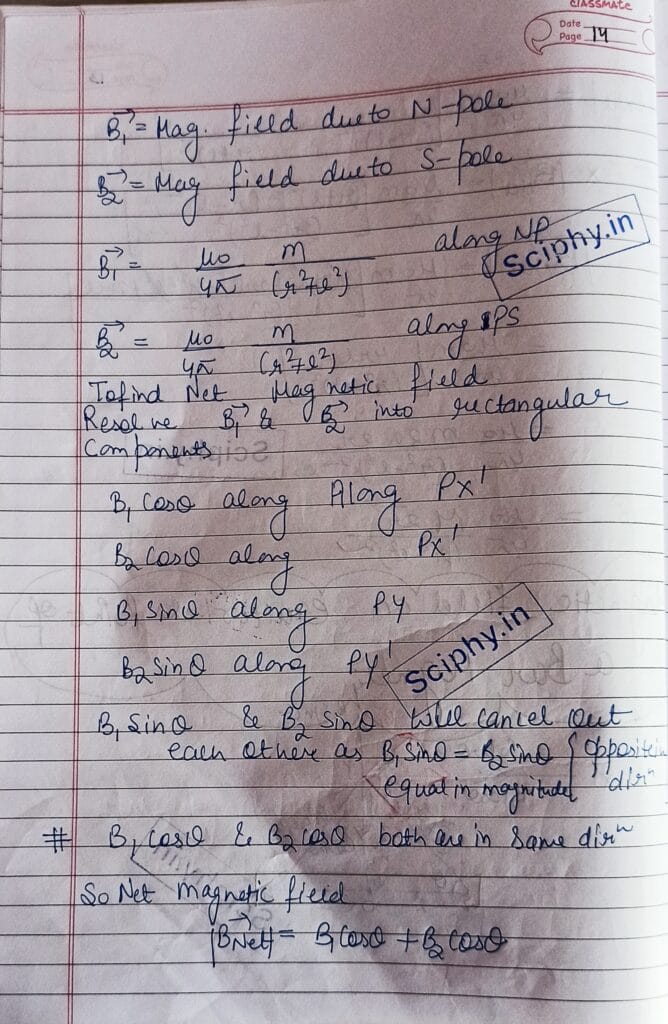 CLASSMATE
Date
Page 14
B₁⃗ = Mag. field due to N-pole
B₂⃗ = Mag field due to S-pole
B₁⃗ = μ₀/4π m/(r²+l²) along NP
Sciphy.in
B₂⃗ = μ₀/4π m/(r²+l²) along PS
To find Net Magnetic field
Resolve B₁⃗ & B₂⃗ into rectangular
Components
B₁ Cosθ along Along Px'
B₂ Cosθ along Px'
B₁ Sinθ along PY
B₂ Sinθ along PY'
Sciphy.in
B₁ Sinθ & B₂ Sinθ will cancel out
each othere as B₁ Sinθ = B₂ Sinθ { opposite in
equal in magnitude dirⁿ
# B₁ Cosθ & B₂ cosθ both are in Same dirⁿ
So Net magnetic field
|B⃗Net| = B₁ Cosθ + B₂ Cosθ